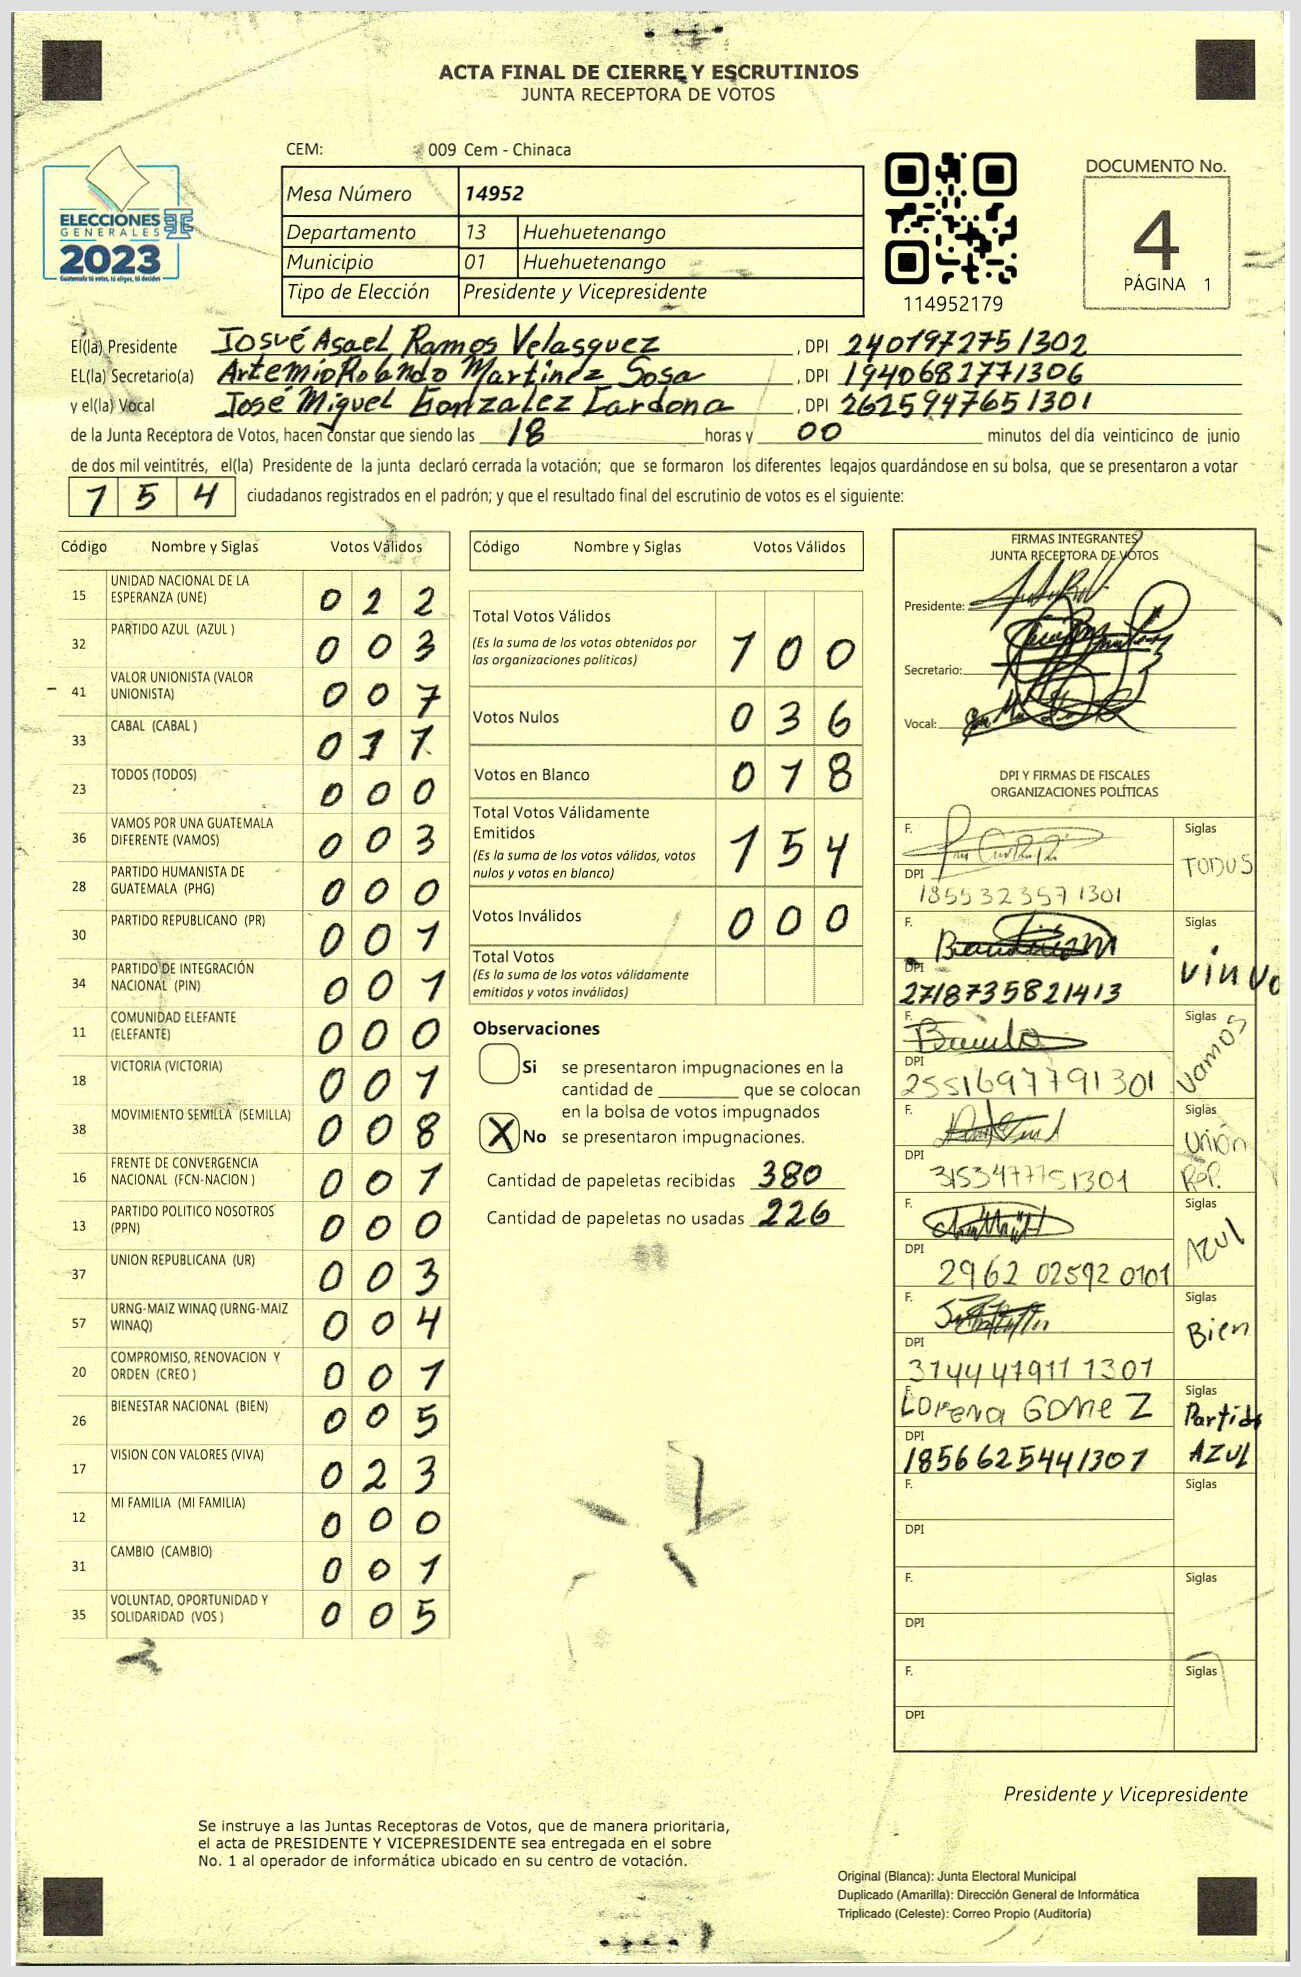 ACTA FINAL DE CIERRE Y ESCRUTINIOS
JUNTA RECEPTORA DE VOTOS
CEM: 009 Cem - Chinaca
ELECCIONES
GENERALES
2023
Guatemala tú votas, tú eliges, tú decides
Mesa Número 14952
Departamento 13 Huehuetenango
Municipio 01 Huehuetenango
Tipo de Elección Presidente y Vicepresidente
114952179
DOCUMENTO No.
4
PÁGINA 1
El(la) Presidente Josué Asael Ramos Velasquez, DPI 2401972751302
EL(la) Secretario(a) Artemio Rolando Martinez Sosa, DPI 1940682771306
y el(la) Vocal José Miguel Gonzalez Cardona, DPI 2625947651301
de la Junta Receptora de Votos, hacen constar que siendo las 18 horas y 00 minutos del día veinticinco de junio
de dos mil veintitrés, el(la) Presidente de la junta declaró cerrada la votación; que se formaron los diferentes legajos quardándose en su bolsa, que se presentaron a votar
154 ciudadanos registrados en el padrón; y que el resultado final del escrutinio de votos es el siguiente:
Código Nombre y Siglas Votos Válidos
15 UNIDAD NACIONAL DE LA ESPERANZA (UNE) 022
32 PARTIDO AZUL (AZUL ) 003
41 VALOR UNIONISTA (VALOR UNIONISTA) 007
33 CABAL (CABAL ) 011
23 TODOS (TODOS) 000
36 VAMOS POR UNA GUATEMALA DIFERENTE (VAMOS) 003
28 PARTIDO HUMANISTA DE GUATEMALA (PHG) 000
30 PARTIDO REPUBLICANO (PR) 001
34 PARTIDO DE INTEGRACIÓN NACIONAL (PIN) 001
11 COMUNIDAD ELEFANTE (ELEFANTE) 000
18 VICTORIA (VICTORIA) 001
38 MOVIMIENTO SEMILLA (SEMILLA) 008
16 FRENTE DE CONVERGENCIA NACIONAL (FCN-NACION ) 001
13 PARTIDO POLITICO NOSOTROS (PPN) 000
37 UNION REPUBLICANA (UR) 003
57 URNG-MAIZ WINAQ (URNG-MAIZ WINAQ) 004
20 COMPROMISO, RENOVACION Y ORDEN (CREO ) 001
26 BIENESTAR NACIONAL (BIEN) 005
17 VISION CON VALORES (VIVA) 023
12 MI FAMILIA (MI FAMILIA) 000
31 CAMBIO (CAMBIO) 001
35 VOLUNTAD, OPORTUNIDAD Y SOLIDARIDAD (VOS ) 005
Código Nombre y Siglas Votos Válidos
Total Votos Válidos
(Es la suma de los votos obtenidos por las organizaciones políticas) 100
Votos Nulos 036
Votos en Blanco 018
Total Votos Válidamente Emitidos
(Es la suma de los votos válidos, votos nulos y votos en blanco) 154
Votos Inválidos 000
Total Votos
(Es la suma de los votos válidamente emitidos y votos inválidos)
Observaciones
Si se presentaron impugnaciones en la
cantidad de ________ que se colocan
en la bolsa de votos impugnados
X No se presentaron impugnaciones.
Cantidad de papeletas recibidas 380
Cantidad de papeletas no usadas 226
FIRMAS INTEGRANTES
JUNTA RECEPTORA DE VOTOS
Presidente:
Secretario:
Vocal:
DPI Y FIRMAS DE FISCALES
ORGANIZACIONES POLÍTICAS
F. Siglas TODOS
DPI 1855323571301
F. Siglas
DPI 2718735821413
F. Siglas Vamos
DPI 2551697791301
F. Siglas Unión Rep.
DPI 3153477751301
F. Siglas AZUL
DPI 2962 02592 0101
F. Siglas Bien
DPI 3144479111301
F. Lorena Gomez Siglas Partido AZUL
DPI 1856625441301
F. Siglas
DPI
F. Siglas
DPI
F. Siglas
DPI
Presidente y Vicepresidente
Se instruye a las Juntas Receptoras de Votos, que de manera prioritaria,
el acta de PRESIDENTE Y VICEPRESIDENTE sea entregada en el sobre
No. 1 al operador de informática ubicado en su centro de votación.
Original (Blanca): Junta Electoral Municipal
Duplicado (Amarilla): Dirección General de Informática
Triplicado (Celeste): Correo Propio (Auditoría)